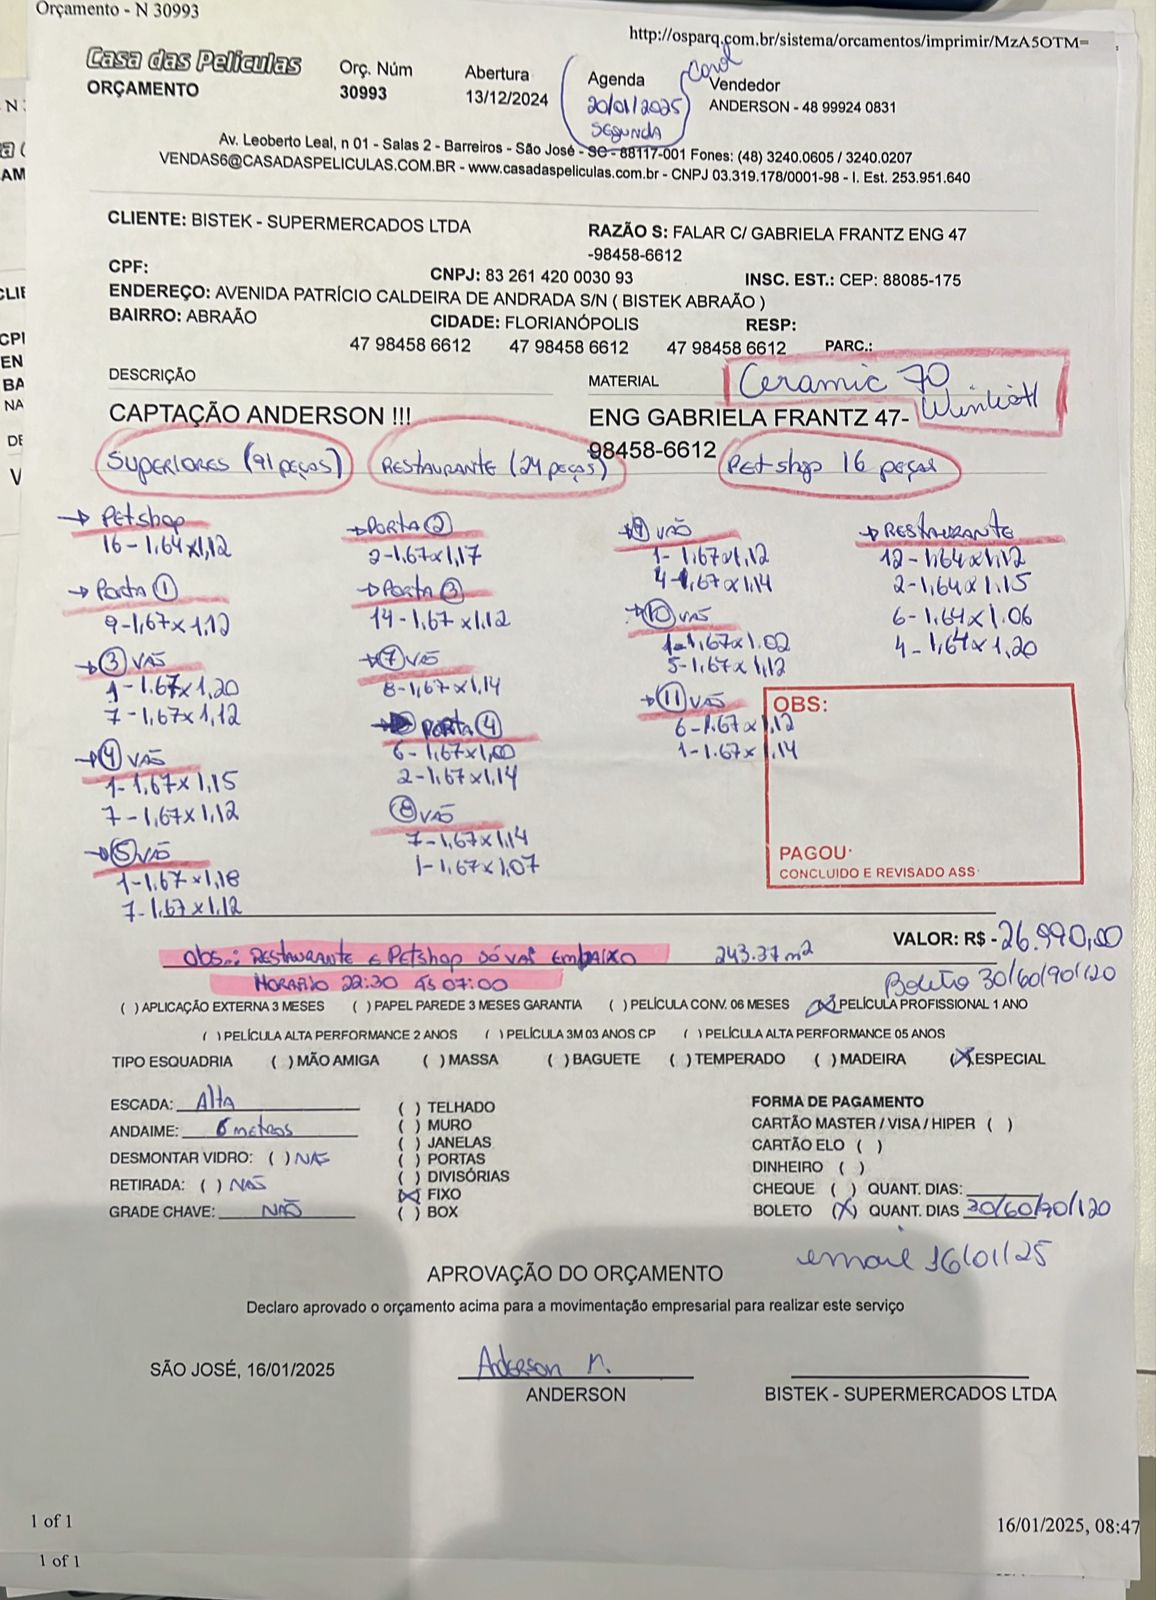 Orçamento - N 30993
http://osparq.com.br/sistema/orcamentos/imprimir/MzA5OTM=
Casa das Películas
ORÇAMENTO
Orç. Núm
30993
Abertura
13/12/2024
Agenda
20/01/2025
SEGUNDA
Carol
Vendedor
ANDERSON - 48 99924 0831
Av. Leoberto Leal, n 01 - Salas 2 - Barreiros - São José - SC - 88117-001 Fones: (48) 3240.0605 / 3240.0207
VENDAS6@CASADASPELICULAS.COM.BR - www.casadaspeliculas.com.br - CNPJ 03.319.178/0001-98 - I. Est. 253.951.640
CLIENTE: BISTEK - SUPERMERCADOS LTDA
RAZÃO S: FALAR C/ GABRIELA FRANTZ ENG 47
-98458-6612
CPF:
CNPJ: 83 261 420 0030 93
INSC. EST.: CEP: 88085-175
ENDEREÇO: AVENIDA PATRÍCIO CALDEIRA DE ANDRADA S/N ( BISTEK ABRAÃO )
BAIRRO: ABRAÃO
CIDADE: FLORIANÓPOLIS
RESP:
47 98458 6612 47 98458 6612 47 98458 6612 PARC.:
DESCRIÇÃO
MATERIAL
Ceramic 70
CAPTAÇÃO ANDERSON !!!
ENG GABRIELA FRANTZ 47-
98458-6612
SUPERIORES (91 PEÇAS)
RESTAURANTE (24 PEÇAS)
Petshop 16 peças
→ Petshop
16-1,64x1,12
→ Porta 1
9-1,67x1,12
→ 3 VÃO
1-1.67x1,20
7-1,67x1,12
→ 4 VÃO
1-1,67x1,15
7-1,67x1,12
→ 5 VÃO
1-1.67x1,18
7-1.67x1.12
→ PORTA 2
2-1,67x1,17
→ Porta 3
14-1,67x1,12
→ 7 VÃO
8-1,67x1,14
→ Porta 4
6-1,67x1,00
2-1,67x1,14
8 VÃO
7-1,67x1,14
1-1,67x1,07
→ 9 VÃO
1-1,67x1,12
4-1,67x1,14
→ 10 VÃO
1-1,67x1.02
5-1,67x1,12
→ 11 VÃO
6-1.67x1,12
1-1.67x1,14
→ RESTAURANTE
12-1,64x1,12
2-1,64x1.15
6-1,64x1.06
4-1,64x1,20
OBS:
PAGOU:
CONCLUIDO E REVISADO ASS
Obs.: RESTAURANTE E Petshop só vai EMBAIXO
243.37m²
HORARIO 22:30 ÀS 07:00
VALOR: R$ -26.990,00
Boleto 30/60/90/120
( ) APLICAÇÃO EXTERNA 3 MESES ( ) PAPEL PAREDE 3 MESES GARANTIA ( ) PELÍCULA CONV. 06 MESES (X) PELÍCULA PROFISSIONAL 1 ANO
( ) PELÍCULA ALTA PERFORMANCE 2 ANOS ( ) PELÍCULA 3M 03 ANOS CP ( ) PELÍCULA ALTA PERFORMANCE 05 ANOS
TIPO ESQUADRIA ( ) MÃO AMIGA ( ) MASSA ( ) BAGUETE ( ) TEMPERADO ( ) MADEIRA (X) ESPECIAL
ESCADA: Alta
ANDAIME: 6 metros
DESMONTAR VIDRO: ( ) NÃO
RETIRADA: ( ) NÃO
GRADE CHAVE: NÃO
( ) TELHADO
( ) MURO
( ) JANELAS
( ) PORTAS
( ) DIVISÓRIAS
(X) FIXO
( ) BOX
FORMA DE PAGAMENTO
CARTÃO MASTER / VISA / HIPER ( )
CARTÃO ELO ( )
DINHEIRO ( )
CHEQUE ( ) QUANT. DIAS:
BOLETO (X) QUANT. DIAS 30/60/90/120
email 16/01/25
APROVAÇÃO DO ORÇAMENTO
Declaro aprovado o orçamento acima para a movimentação empresarial para realizar este serviço
SÃO JOSÉ, 16/01/2025
Anderson n.
ANDERSON
BISTEK - SUPERMERCADOS LTDA
1 of 1
16/01/2025, 08:47
1 of 1